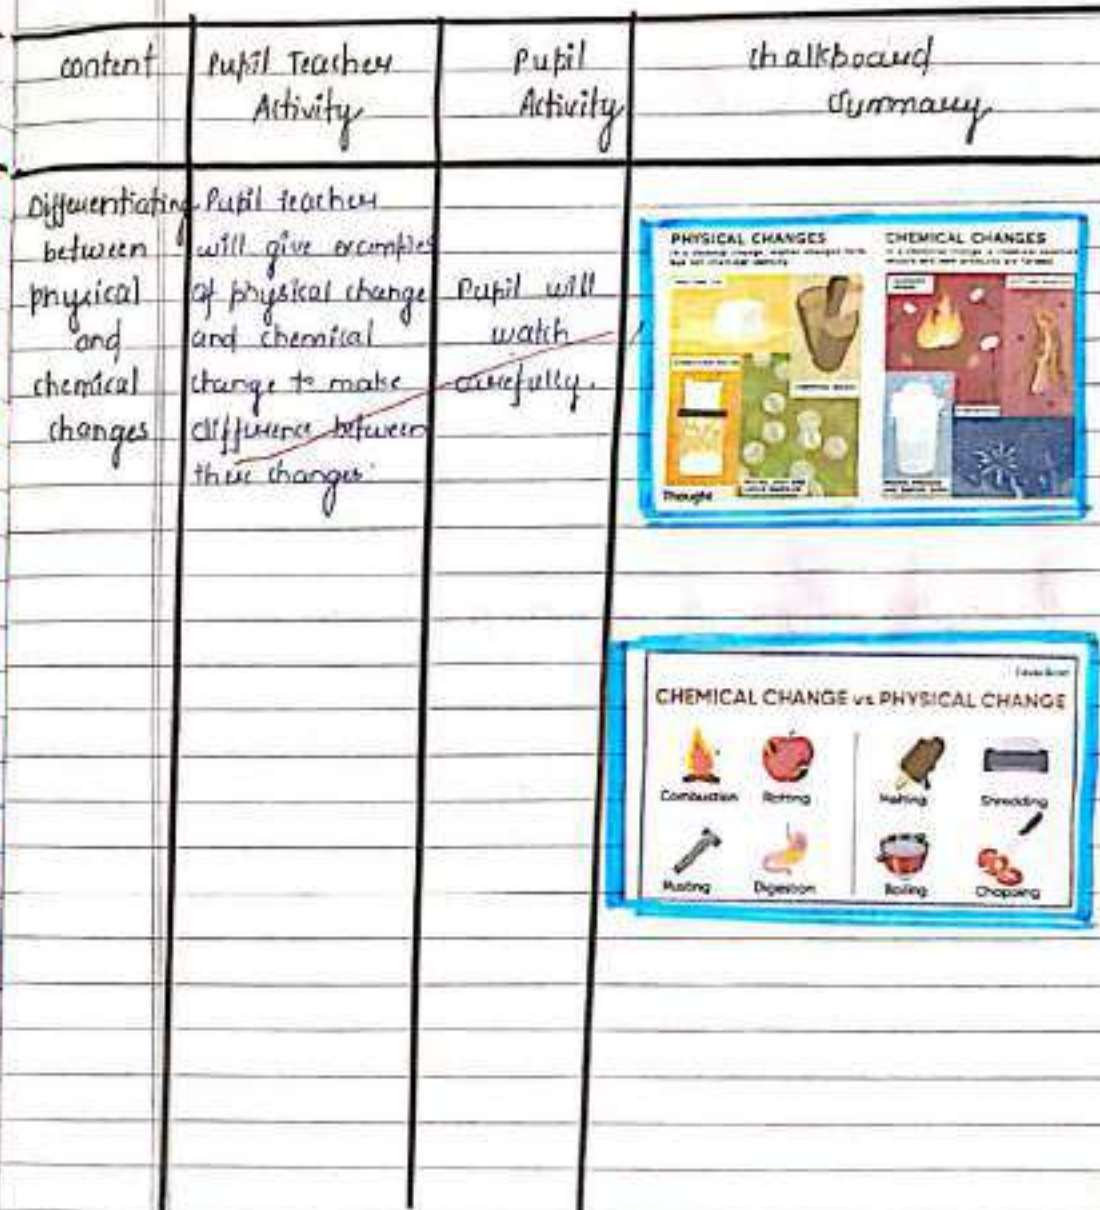 content
Pupil Teacher
Activity
Pupil
Activity
Chalkboard
Summary
Differentiating
between
physical
and
chemical
changes
Pupil teacher
will give examples
of physical change
and chemical
change to make
difference between
these changes
Pupil will
watch
carefully.
PHYSICAL CHANGES
CHEMICAL CHANGES
Thought
CHEMICAL CHANGE vs PHYSICAL CHANGE
Combustion
Rotting
Melting
Shredding
Rusting
Digestion
Boiling
Chopping